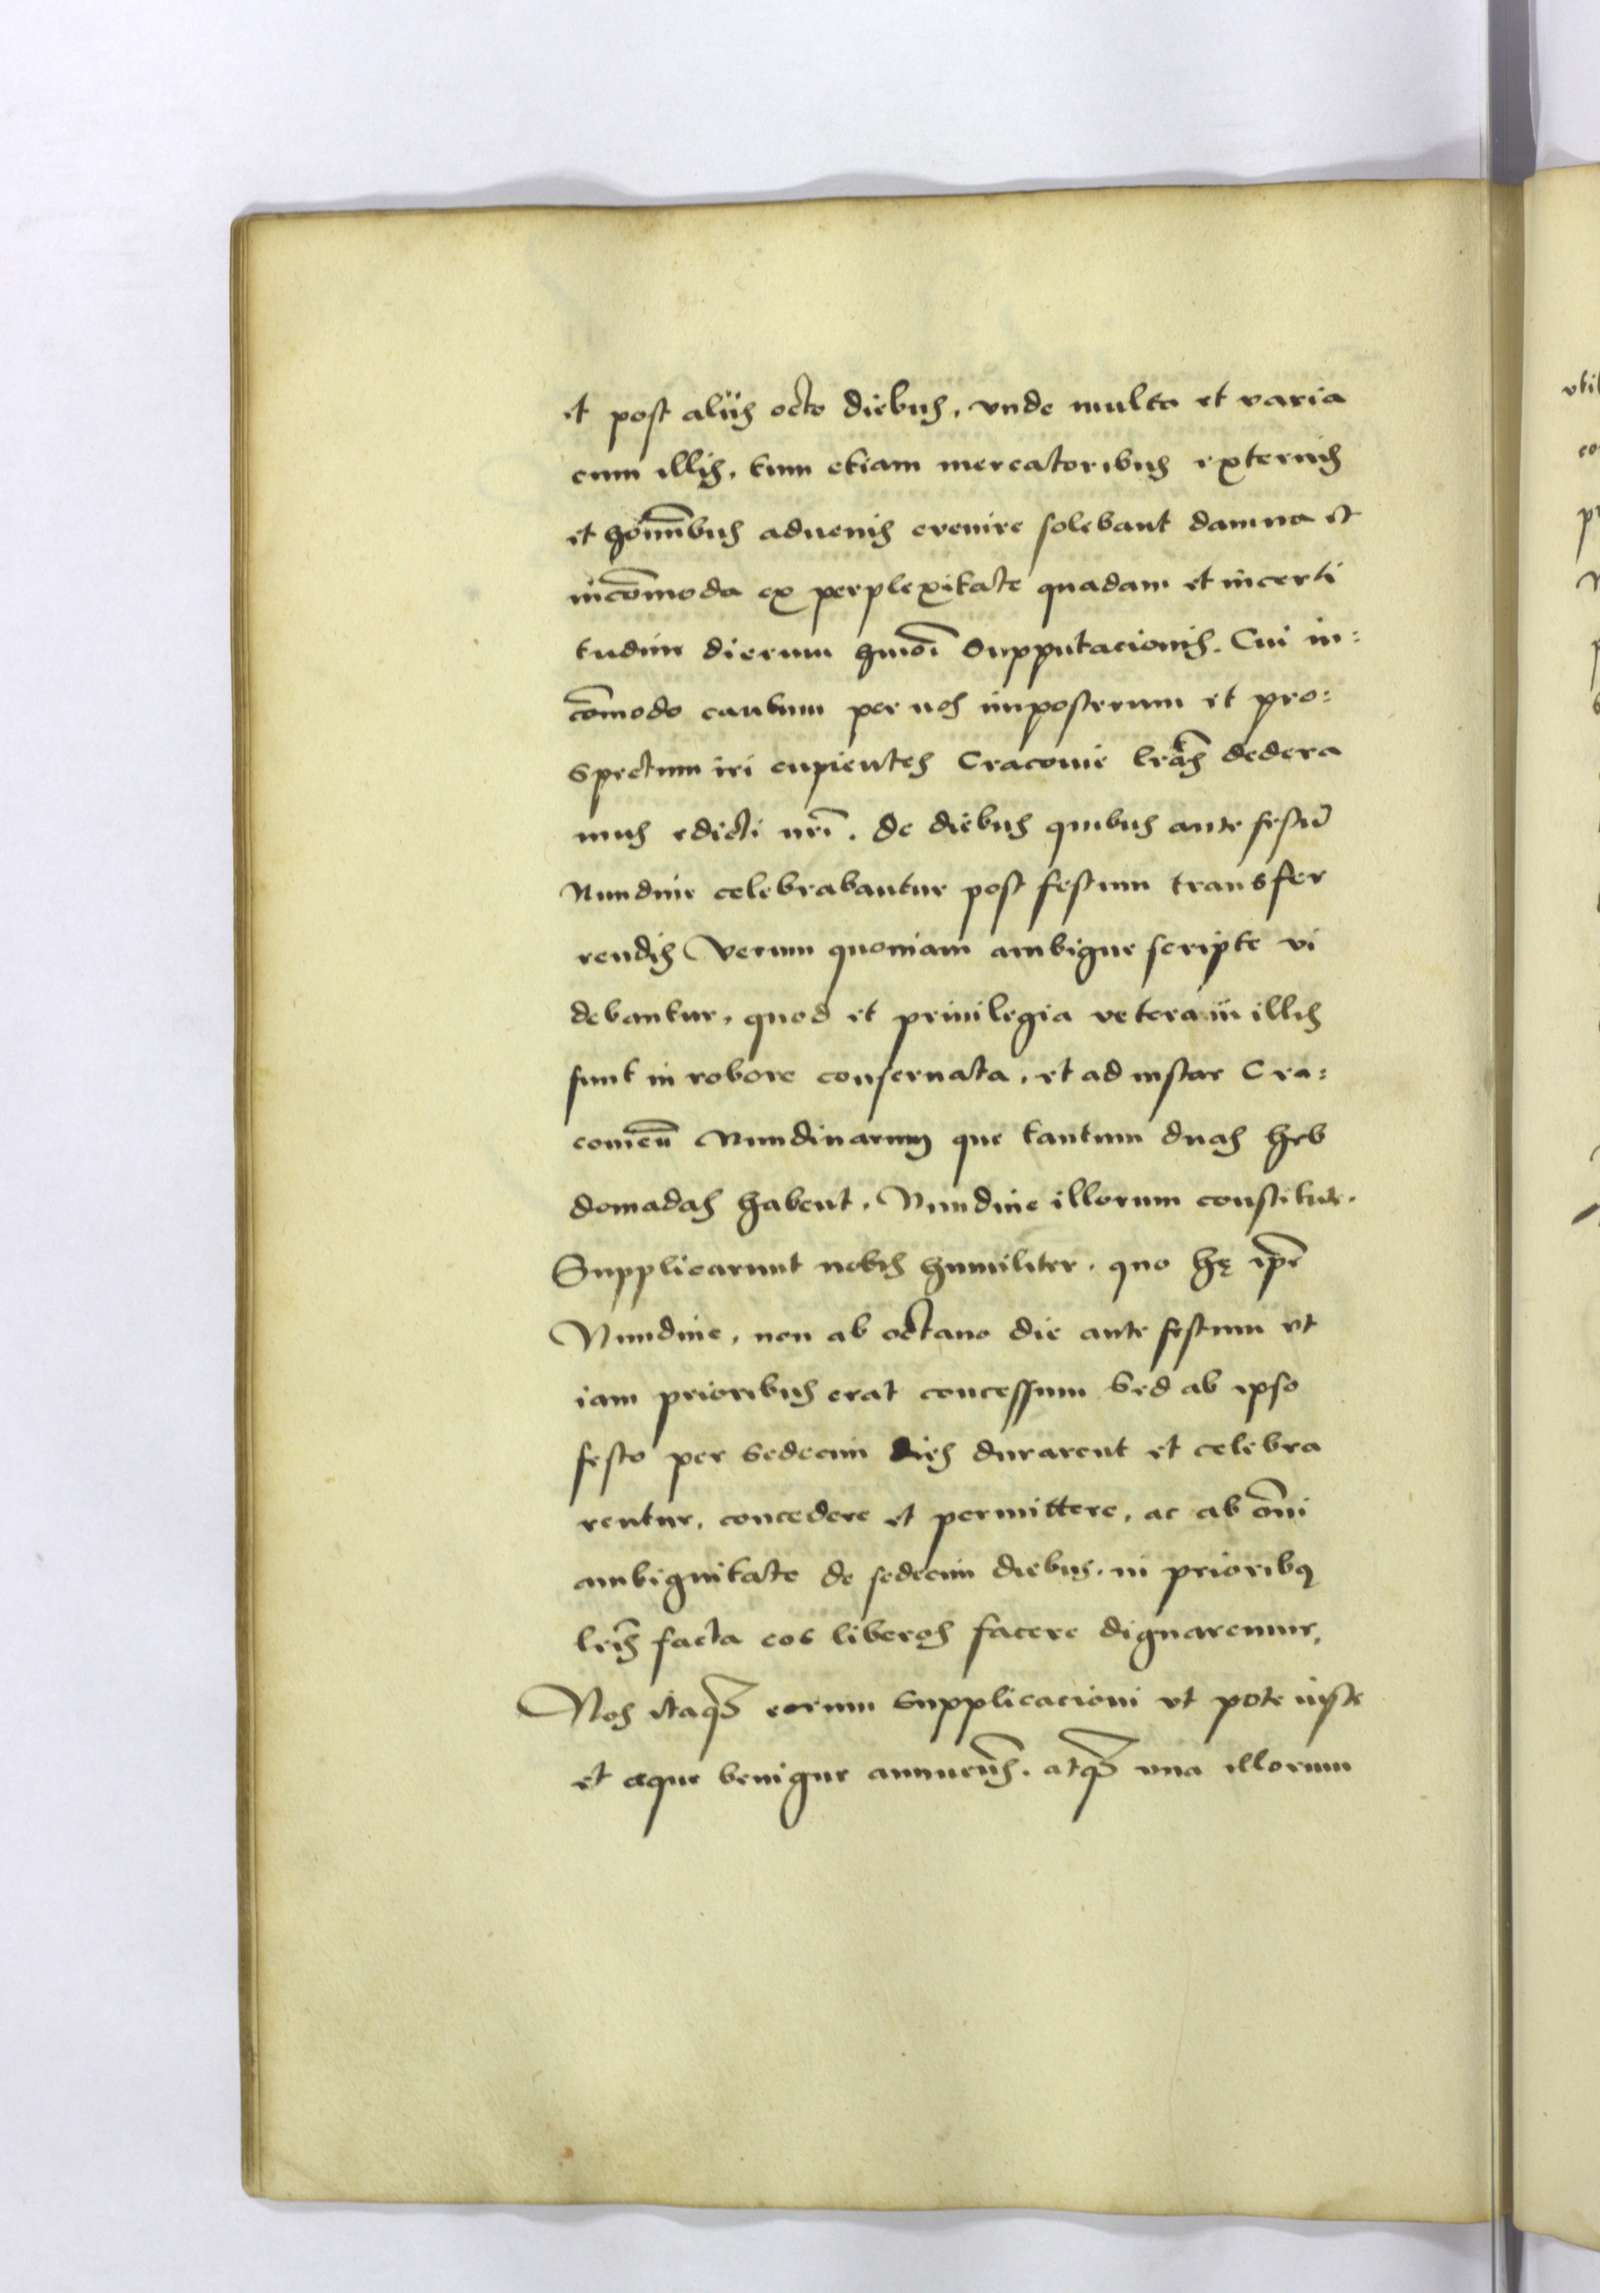 et post aliis octo diebus, vnde multa et varia
cum illis, tum etiam mercatoribus externis
et hom̄ībus aduenis evenire solebant damna et
incōmoda ex perplexitate quadam et incerti
tudine dierum hmōi supputacionis. Cui in:
cōmodo cautum per nos imposterum et pro:
spectum iri cupientes Cracouie lrās dedera
mus edicti nrī. de diebus quibus ante festū
Nundine celebrabantur post festum transfer
rendis Verum quoniam ambigue scripte vi
debantur, quod et priuilegia vetera in illis
sunt in robore conseruata, et ad instar Cra:
couieñ Nundinarum que tantum duas heb
domadas habent. Nundine illorum constitute.
Supplicarunt nobis humiliter, quo hę ip̄e
Nundine, non ab octauo die ante festum vt
iam prioribus erat concessum Sed ab ipso
festo per sedecim dies durarent et celebra
rentur, concedere et permittere, ac ab om̄i
ambiguitate de sedecim diebus, in prioribq
lrīs facta eos liberos facere dignaremur,
Nos itaq̄ eorum supplicacioni vt pote iuste
et eque benigne annueñs. atq̄ vna illorum
utit
co